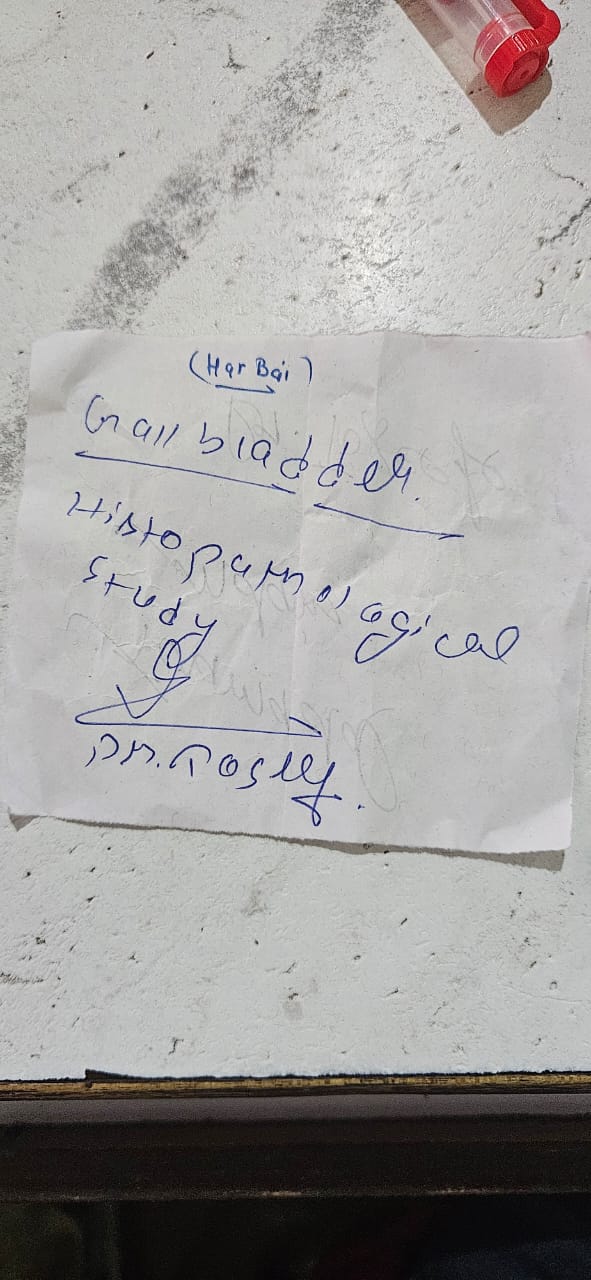 (Har Bai)
Gall bladder.
Histopathological
study
Dr.